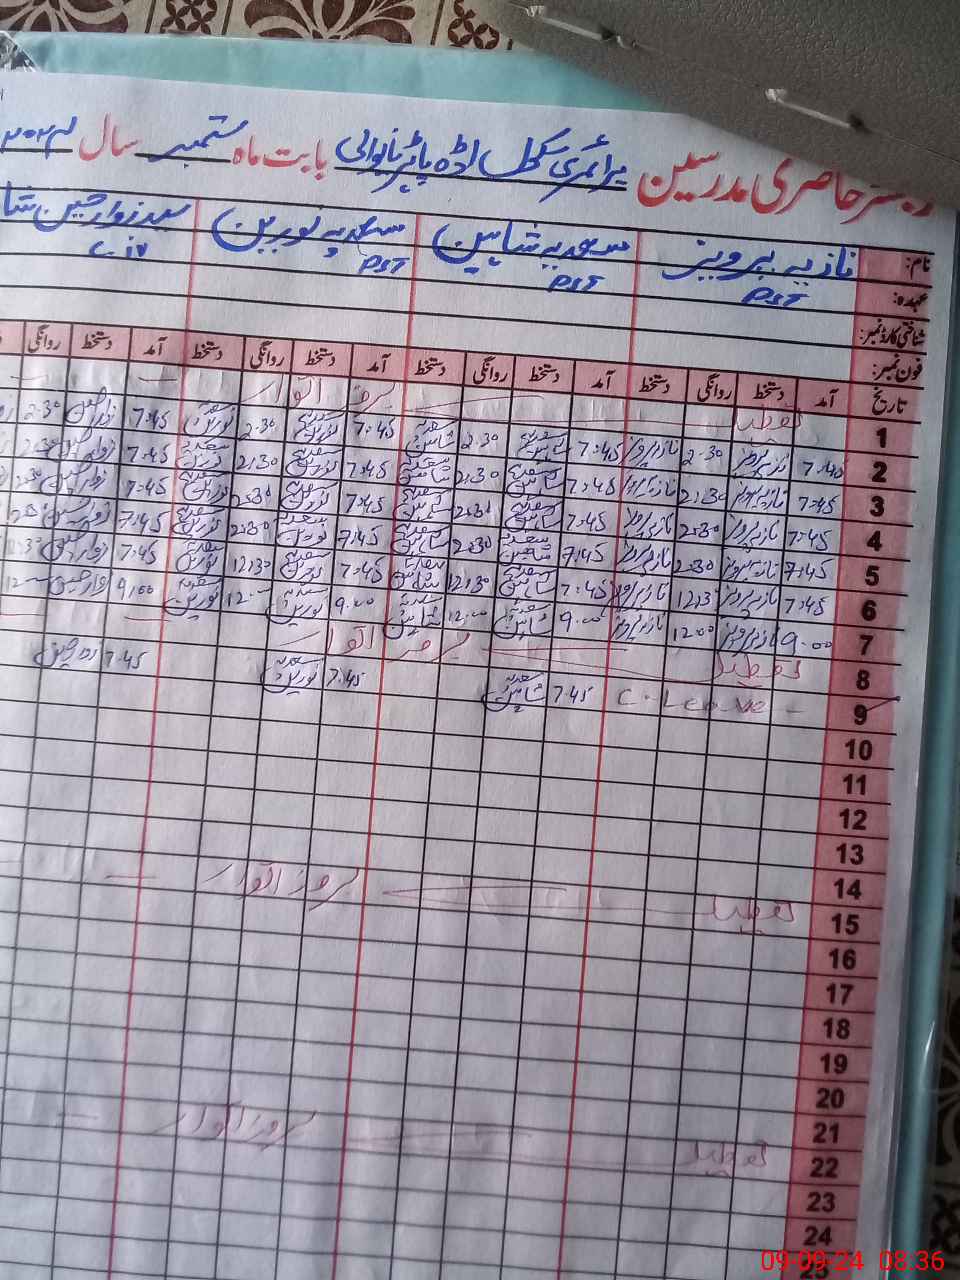 رجسٹر حاضری مدرسین پرائمری سکول اڈہ بابت ماہ ستمبر سال ۲۰۲۴
نام: نازیہ پرویز سعدیہ شاہین سعدیہ نورین سید زوار حسین شا
عہدہ: PST PST PST
شناختی کارڈ نمبر:
فون نمبر:
تاریخ آمد دستخط روانگی دستخط آمد دستخط روانگی دستخط آمد دستخط روانگی دستخط آمد دستخط روانگی
1 تعطیل بروز اتوار
2 7:45 نازیہ پرویز 2:30 نازیہ پرویز 7:45 سعدیہ شاہین 2:30 سعدیہ شاہین 7:45 سعدیہ نورین 2:30 سعدیہ نورین 7:45 زوار حسین 2:30
3 7:45 نازیہ پرویز 2:30 نازیہ پرویز 7:45 سعدیہ شاہین 2:30 سعدیہ شاہین 7:45 سعدیہ نورین 2:30 سعدیہ نورین 7:45 زوار حسین 2:30
4 7:45 نازیہ پرویز 2:30 نازیہ پرویز 7:45 سعدیہ شاہین 2:30 سعدیہ شاہین 7:45 سعدیہ نورین 2:30 سعدیہ نورین 7:45 زوار حسین 2:30
5 7:45 نازیہ پرویز 2:30 نازیہ پرویز 7:45 سعدیہ شاہین 2:30 سعدیہ شاہین 7:45 سعدیہ نورین 2:30 سعدیہ نورین 7:45 زوار حسین
6 7:45 نازیہ پرویز 12:3 نازیہ پرویز 7:45 سعدیہ شاہین 12:30 سعدیہ شاہین 7:45 سعدیہ نورین 12:30 سعدیہ نورین 7:45 زوار حسین
7 9:00 نازیہ پرویز 12:00 نازیہ پرویز 9:00 سعدیہ شاہین 12:00 سعدیہ شاہین 9:00 سعدیہ نورین سعدیہ نورین 9:00 زوار حسین
8 تعطیل بروز اتوار
9 C. Leave 7:45 سعدیہ شاہین 7:45 سعدیہ نورین 7:45
10
11
12
13
14
15 تعطیل بروز اتوار
16
17
18
19
20
21
22 تعطیل بروز اتوار
23
24
25
09-09-24 08:36